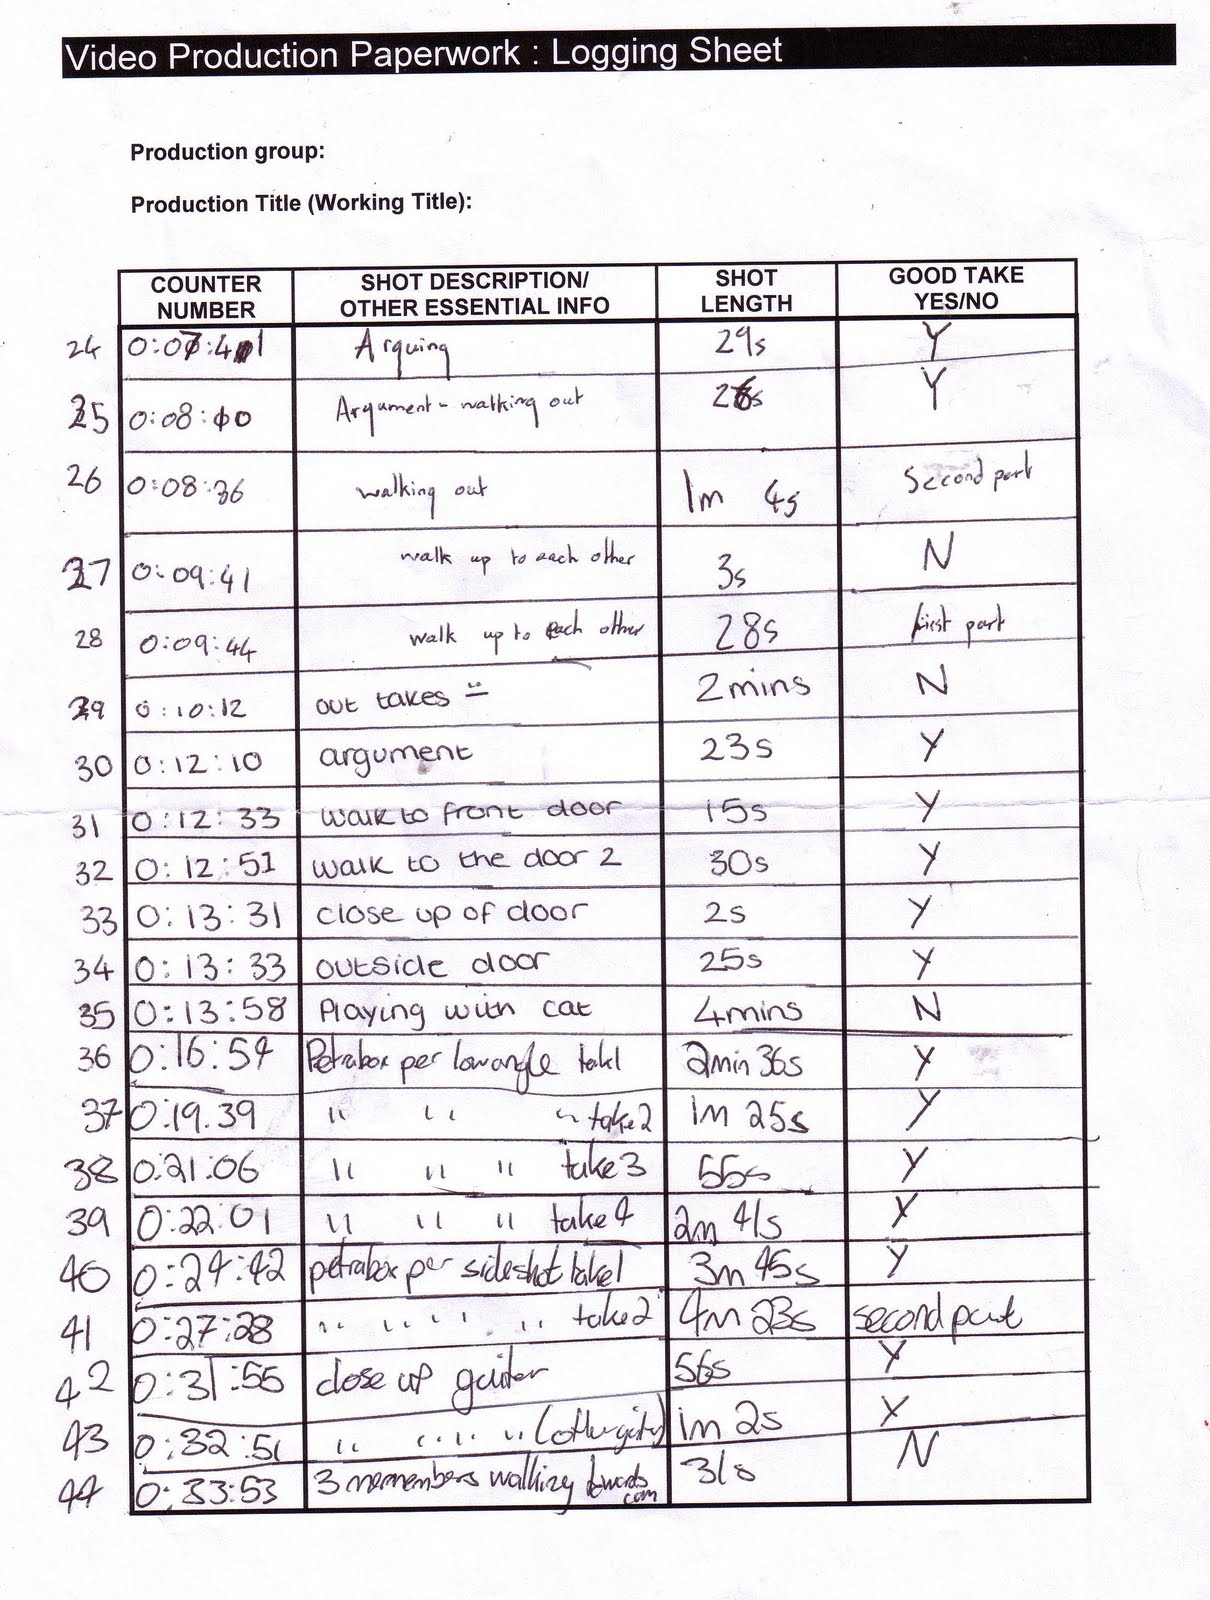 Video Production Paperwork : Logging Sheet
Production group:
Production Title (Working Title):
COUNTER NUMBER SHOT DESCRIPTION/ OTHER ESSENTIAL INFO SHOT LENGTH GOOD TAKE YES/NO
24 0:07:41 Arguing 29s Y
25 0:08:10 Argument - walking out 26s Y
26 0:08:36 walking out 1m 4s Second part
27 0:09:41 walk up to each other 3s N
28 0:09:44 walk up to each other 28s first part
29 0:10:12 out takes 2mins N
30 0:12:10 argument 23s Y
31 0:12:33 walk to front door 15s Y
32 0:12:51 walk to the door 2 30s Y
33 0:13:31 close up of door 2s Y
34 0:13:33 outside door 25s Y
35 0:13:58 Playing with cat 4mins N
36 0:16:54 Petrabox per low angle take1 2min 36s Y
37 0:19.39 " " " take 2 1m 25s Y
38 0:21:06 " " " take 3 55s Y
39 0:22:01 " " " take 4 2m 41s Y
40 0:24:42 petrabox per sideshot take1 3m 45s Y
41 0:27:28 " " " " take 2 4m 23s second part
42 0:31:55 close up guiter 56s Y
43 0:32:51 " " " " 1m 2s Y
44 0:33:53 3 memembers walking towards com 31s N